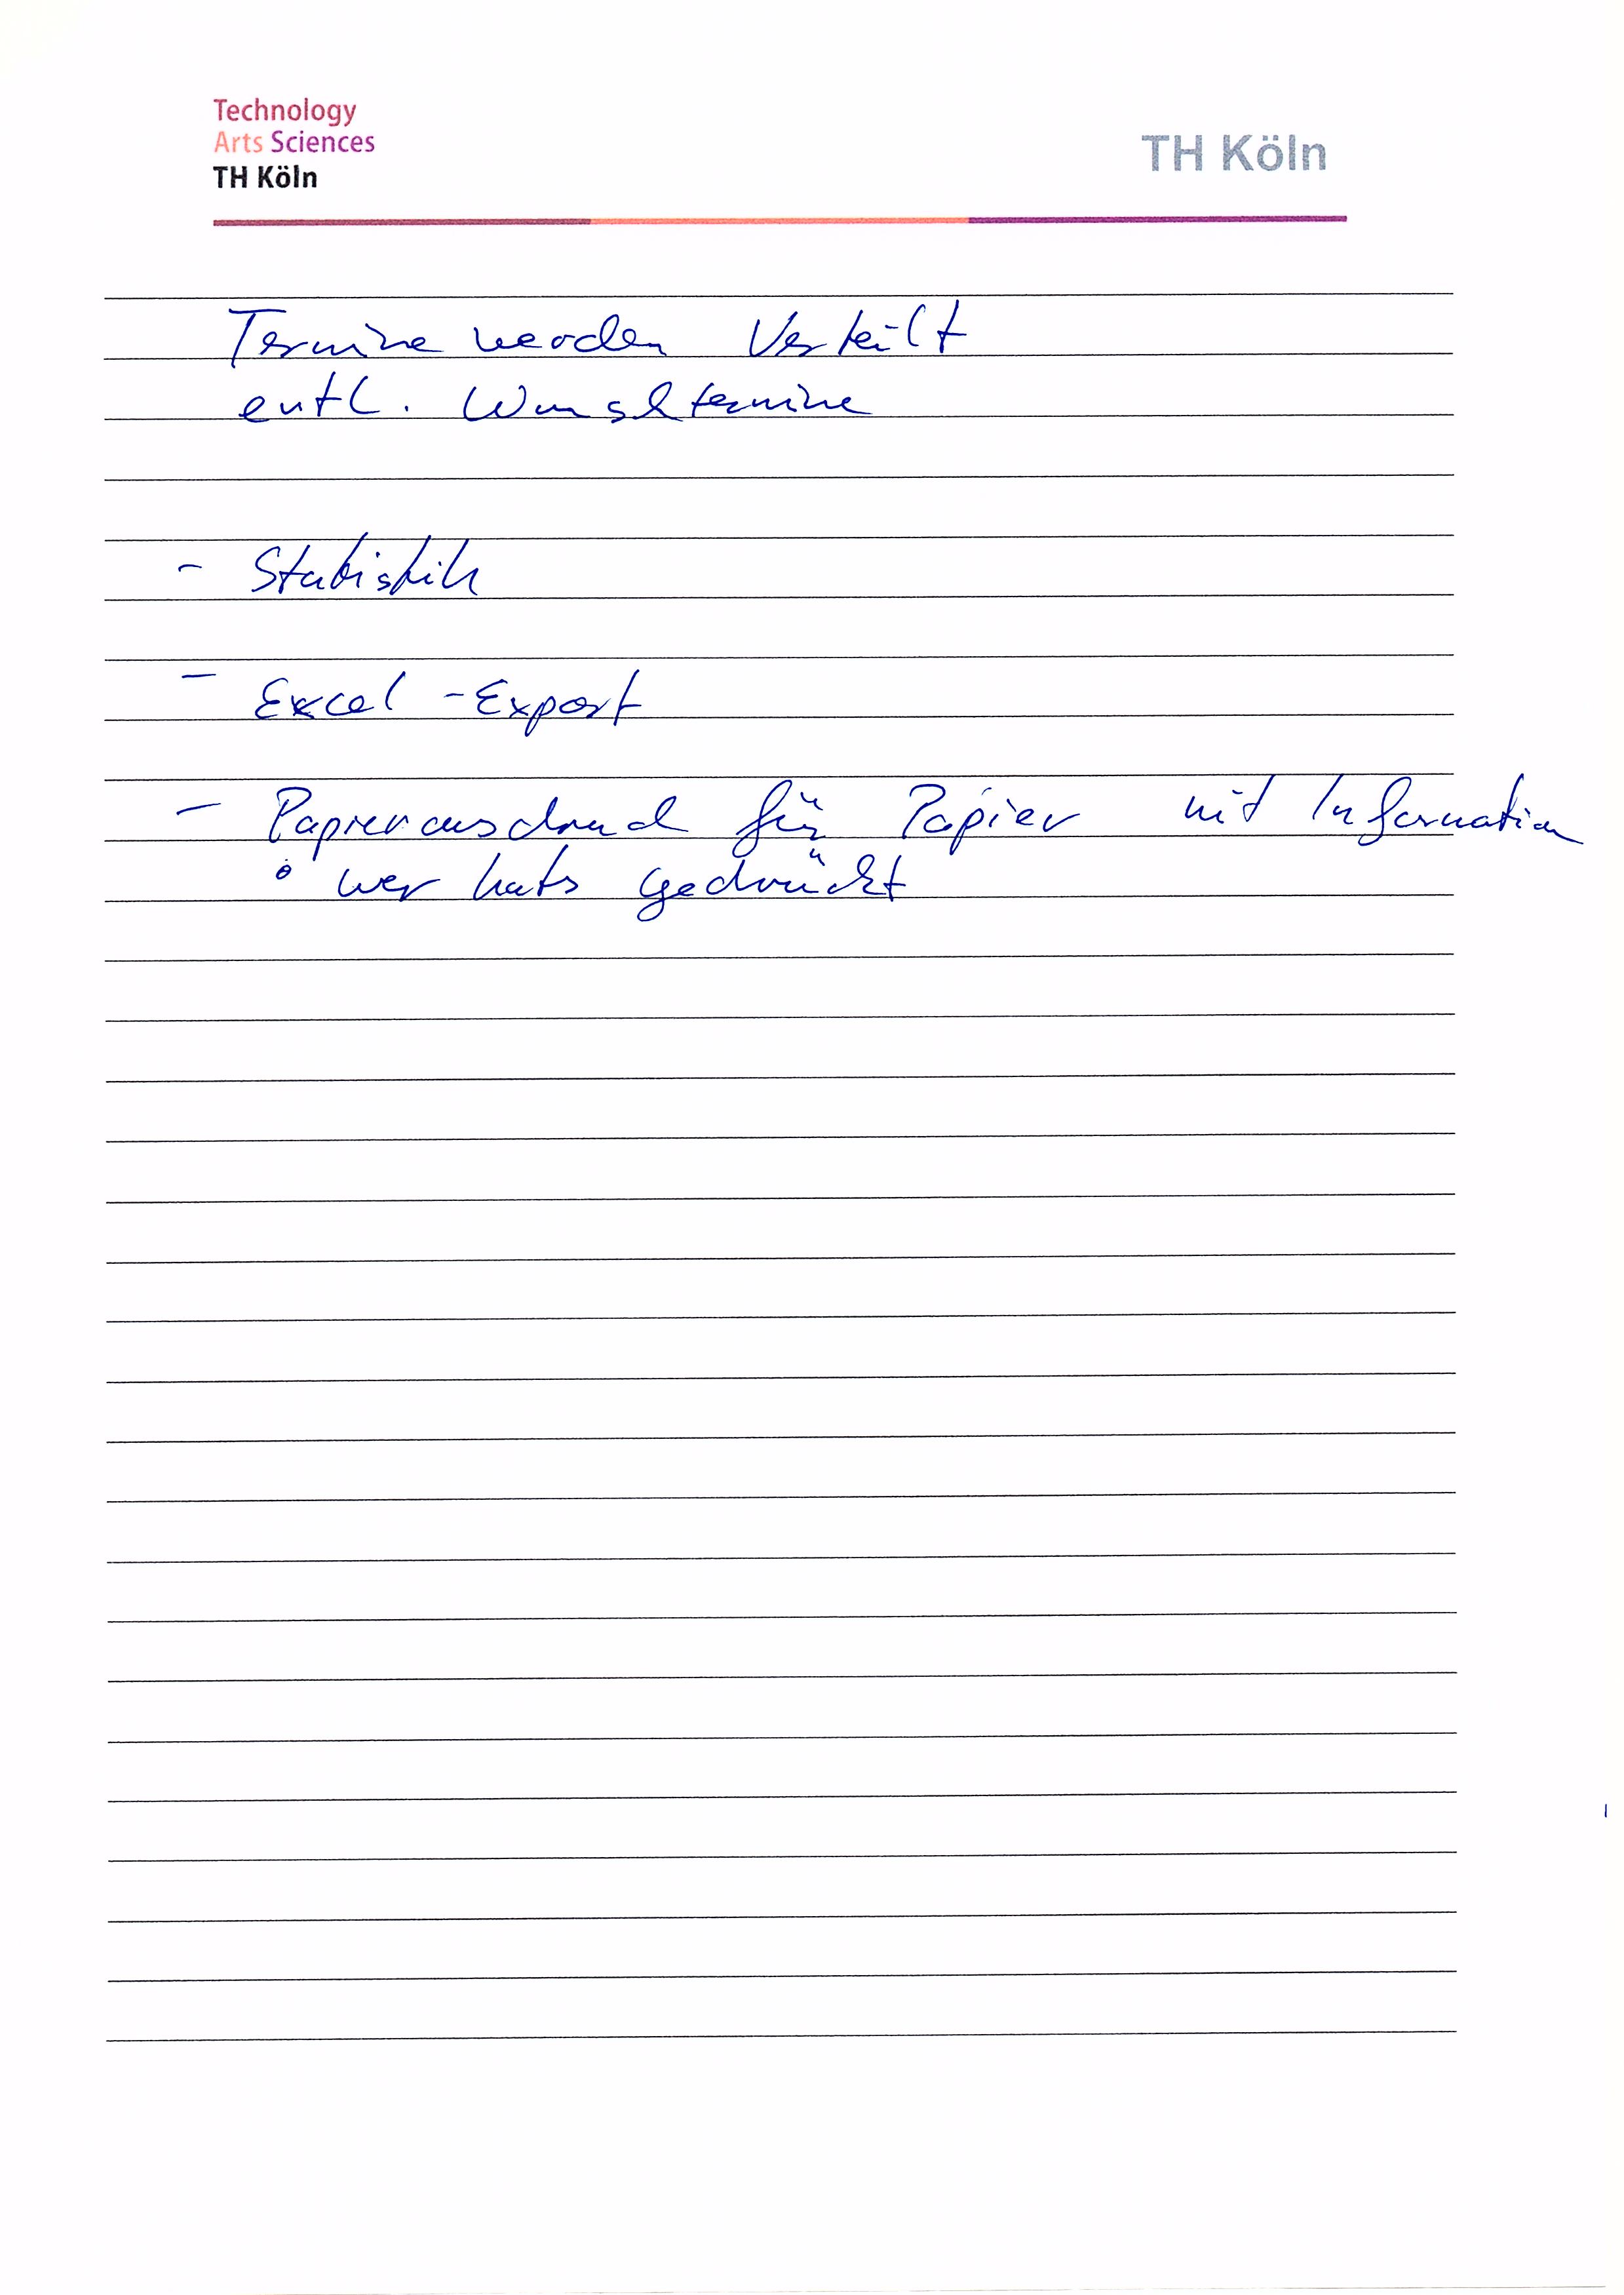 Technology
Arts Sciences
TH Köln
TH Köln
Termine werden Verteilt
evtl. Wunschtermine
- Statistik
- Excel - Export
- Papierausdruck für Papier mit Information
° wer hats gedrückt